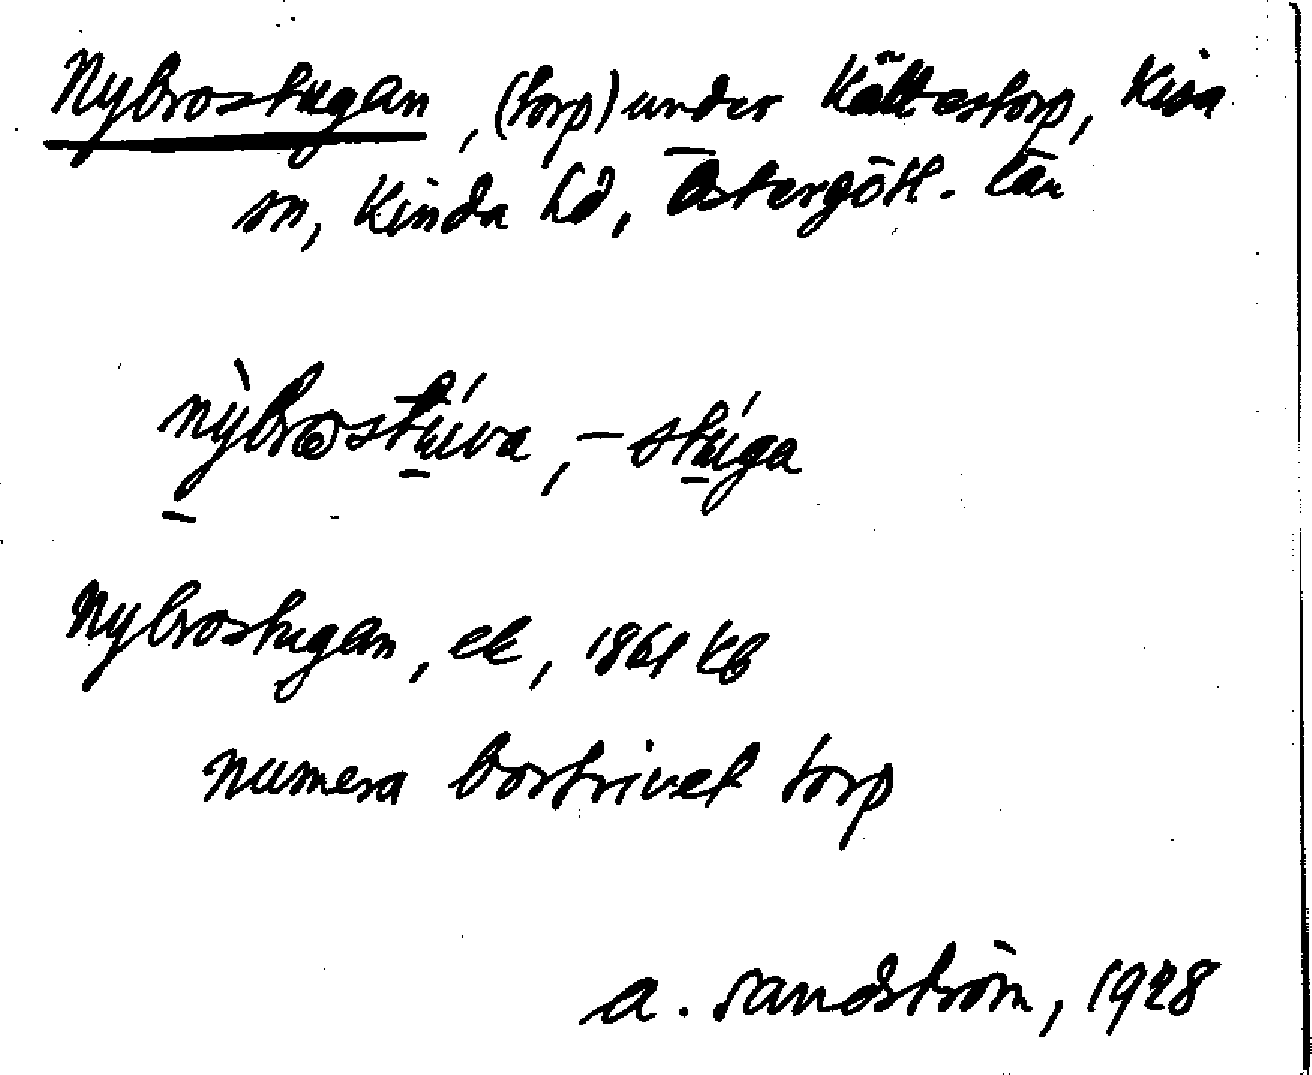 Nybrostugan, (torp) under Kättestorp, Kisa
sn, Kinda hd, Östergötl. län
nỳbrostúva, - stúga
Nybrostugan, ek, 1861 kb
numera bortrivet torp
A. Sandström, 1928